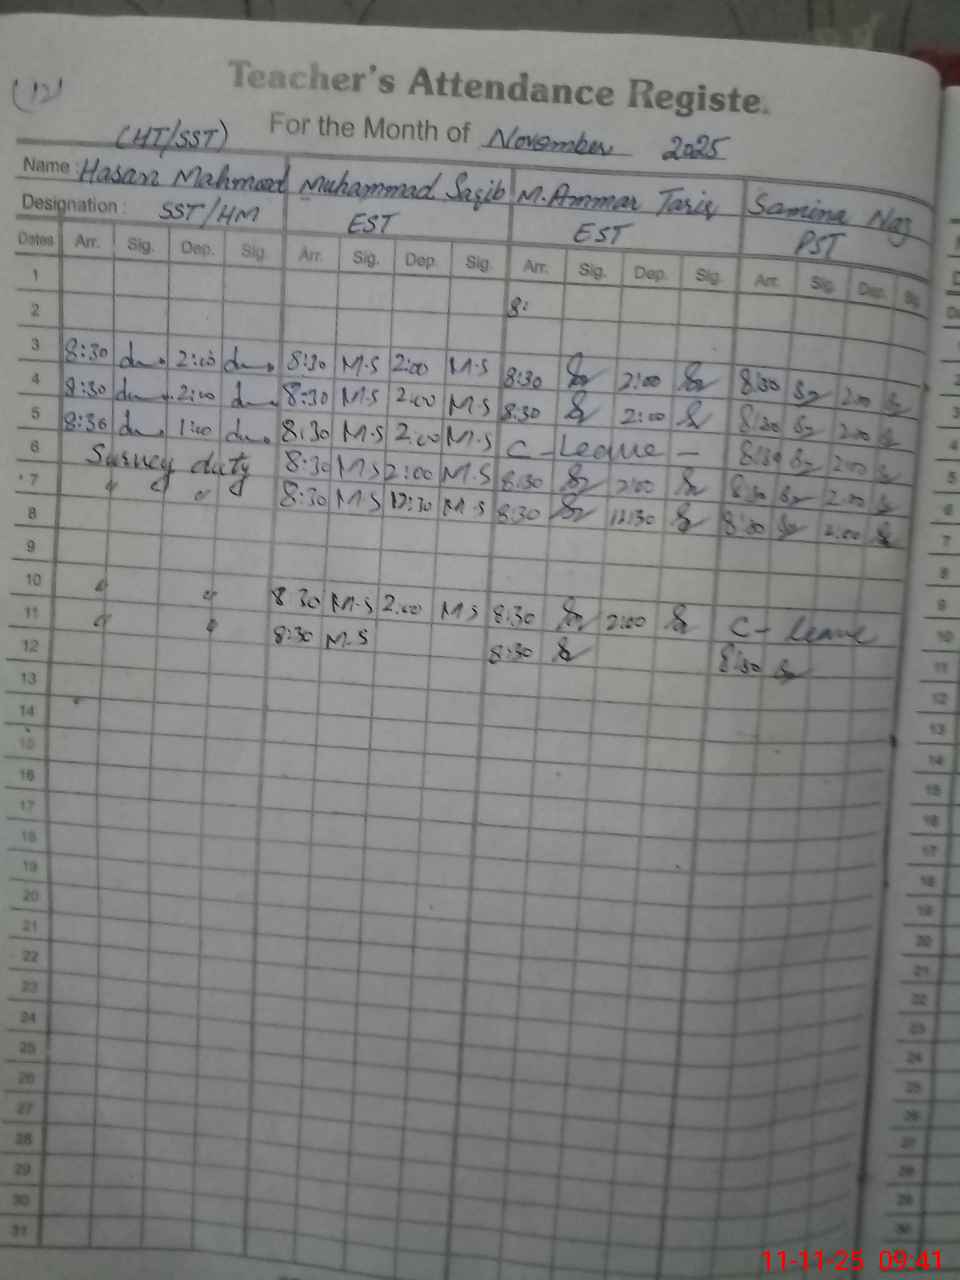 (12)
Teacher's Attendance Registe.
(HT/SST) For the Month of November 2025
Name : Hasan Mahmood Muhammad Saqib M. Ammar Tariq Samina Naz
Designation : SST/HM EST EST PST
Dates Arr. Sig. Dep. Sig. Arr. Sig. Dep. Sig. Arr. Sig. Dep. Sig. Arr. Sig. Dep. Sig.
1
2 8:
3 8:30 2:00 8:30 M.S 2:00 M.S 8:30 2:00 8:30 2:00
4 8:30 2:00 8:30 M.S 2:00 M.S 8:30 2:00 8:30 2:00
5 8:30 1:00 8:30 M.S 2:00 M.S C-Leave - 8:30 2:00
6 Survey duty 8:30 M.S 2:00 M.S 8:30 2:00 8:30 2:00
7 " " 8:30 M.S 12:30 M.S 8:30 12:30 8:30 2:00
8
9
10 " " 8:30 M.S 2:00 M.S 8:30 2:00 C- leave
11 " " 8:30 M.S 8:30 8:30
12
13
14
15
16
17
18
19
20
21
22
23
24
25
26
27
28
29
30
31
11-11-25 09:41